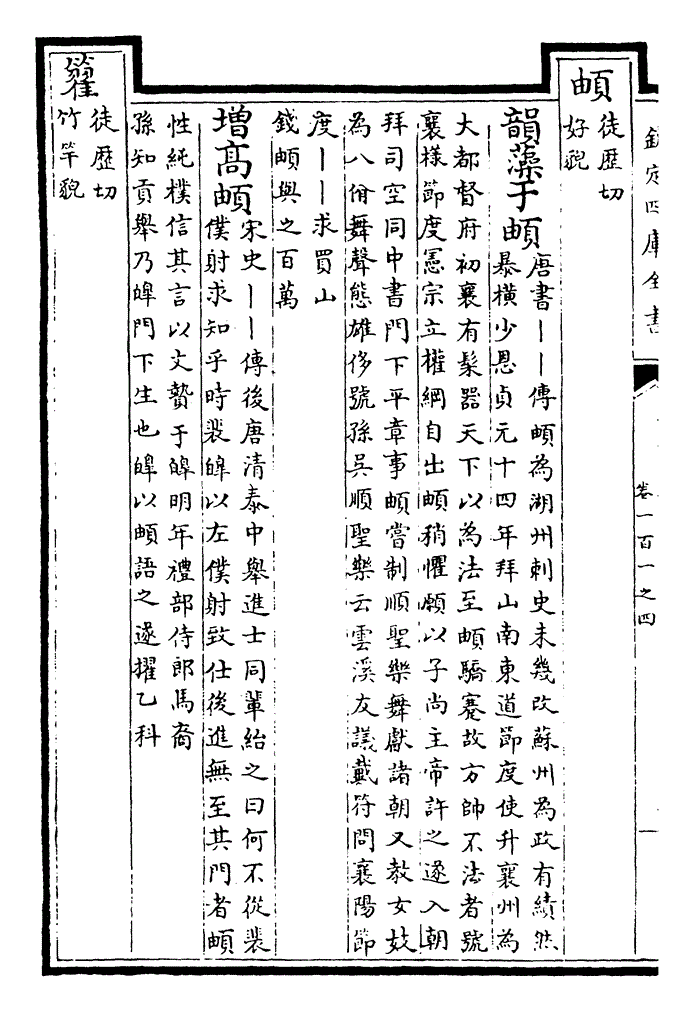 欽定四庫全書
卷一百一之四
頔
徒歷切
好貌
韻藻于頔
唐書丨丨傳頔為湖州刺史未幾改蘇州為政有績然
暴橫少恩貞元十四年拜山南東道節度使升襄州為
大都督府初襄有髹器天下以為法至頔驕蹇故方帥不法者號
襄樣節度憲宗立權綱自出頔稍懼願以子尚主帝許之遂入朝
拜司空同中書門下平章事頔嘗制順聖樂舞獻諸朝又教女妓
為八佾舞聲態雄侈號孫吳順聖樂云雲溪友議戴符問襄陽節
度丨丨求買山
錢頔與之百萬
增高頔
宋史丨丨傳後唐清泰中舉進士同輩紿之曰何不從裴
僕射求知乎時裴皞以左僕射致仕後進無至其門者頔
性純樸信其言以文贄于皞明年禮部侍郎馬裔
孫知貢舉乃皞門下生也皞以頔語之遂擢乙科
籊
徒歷切
竹竿貌